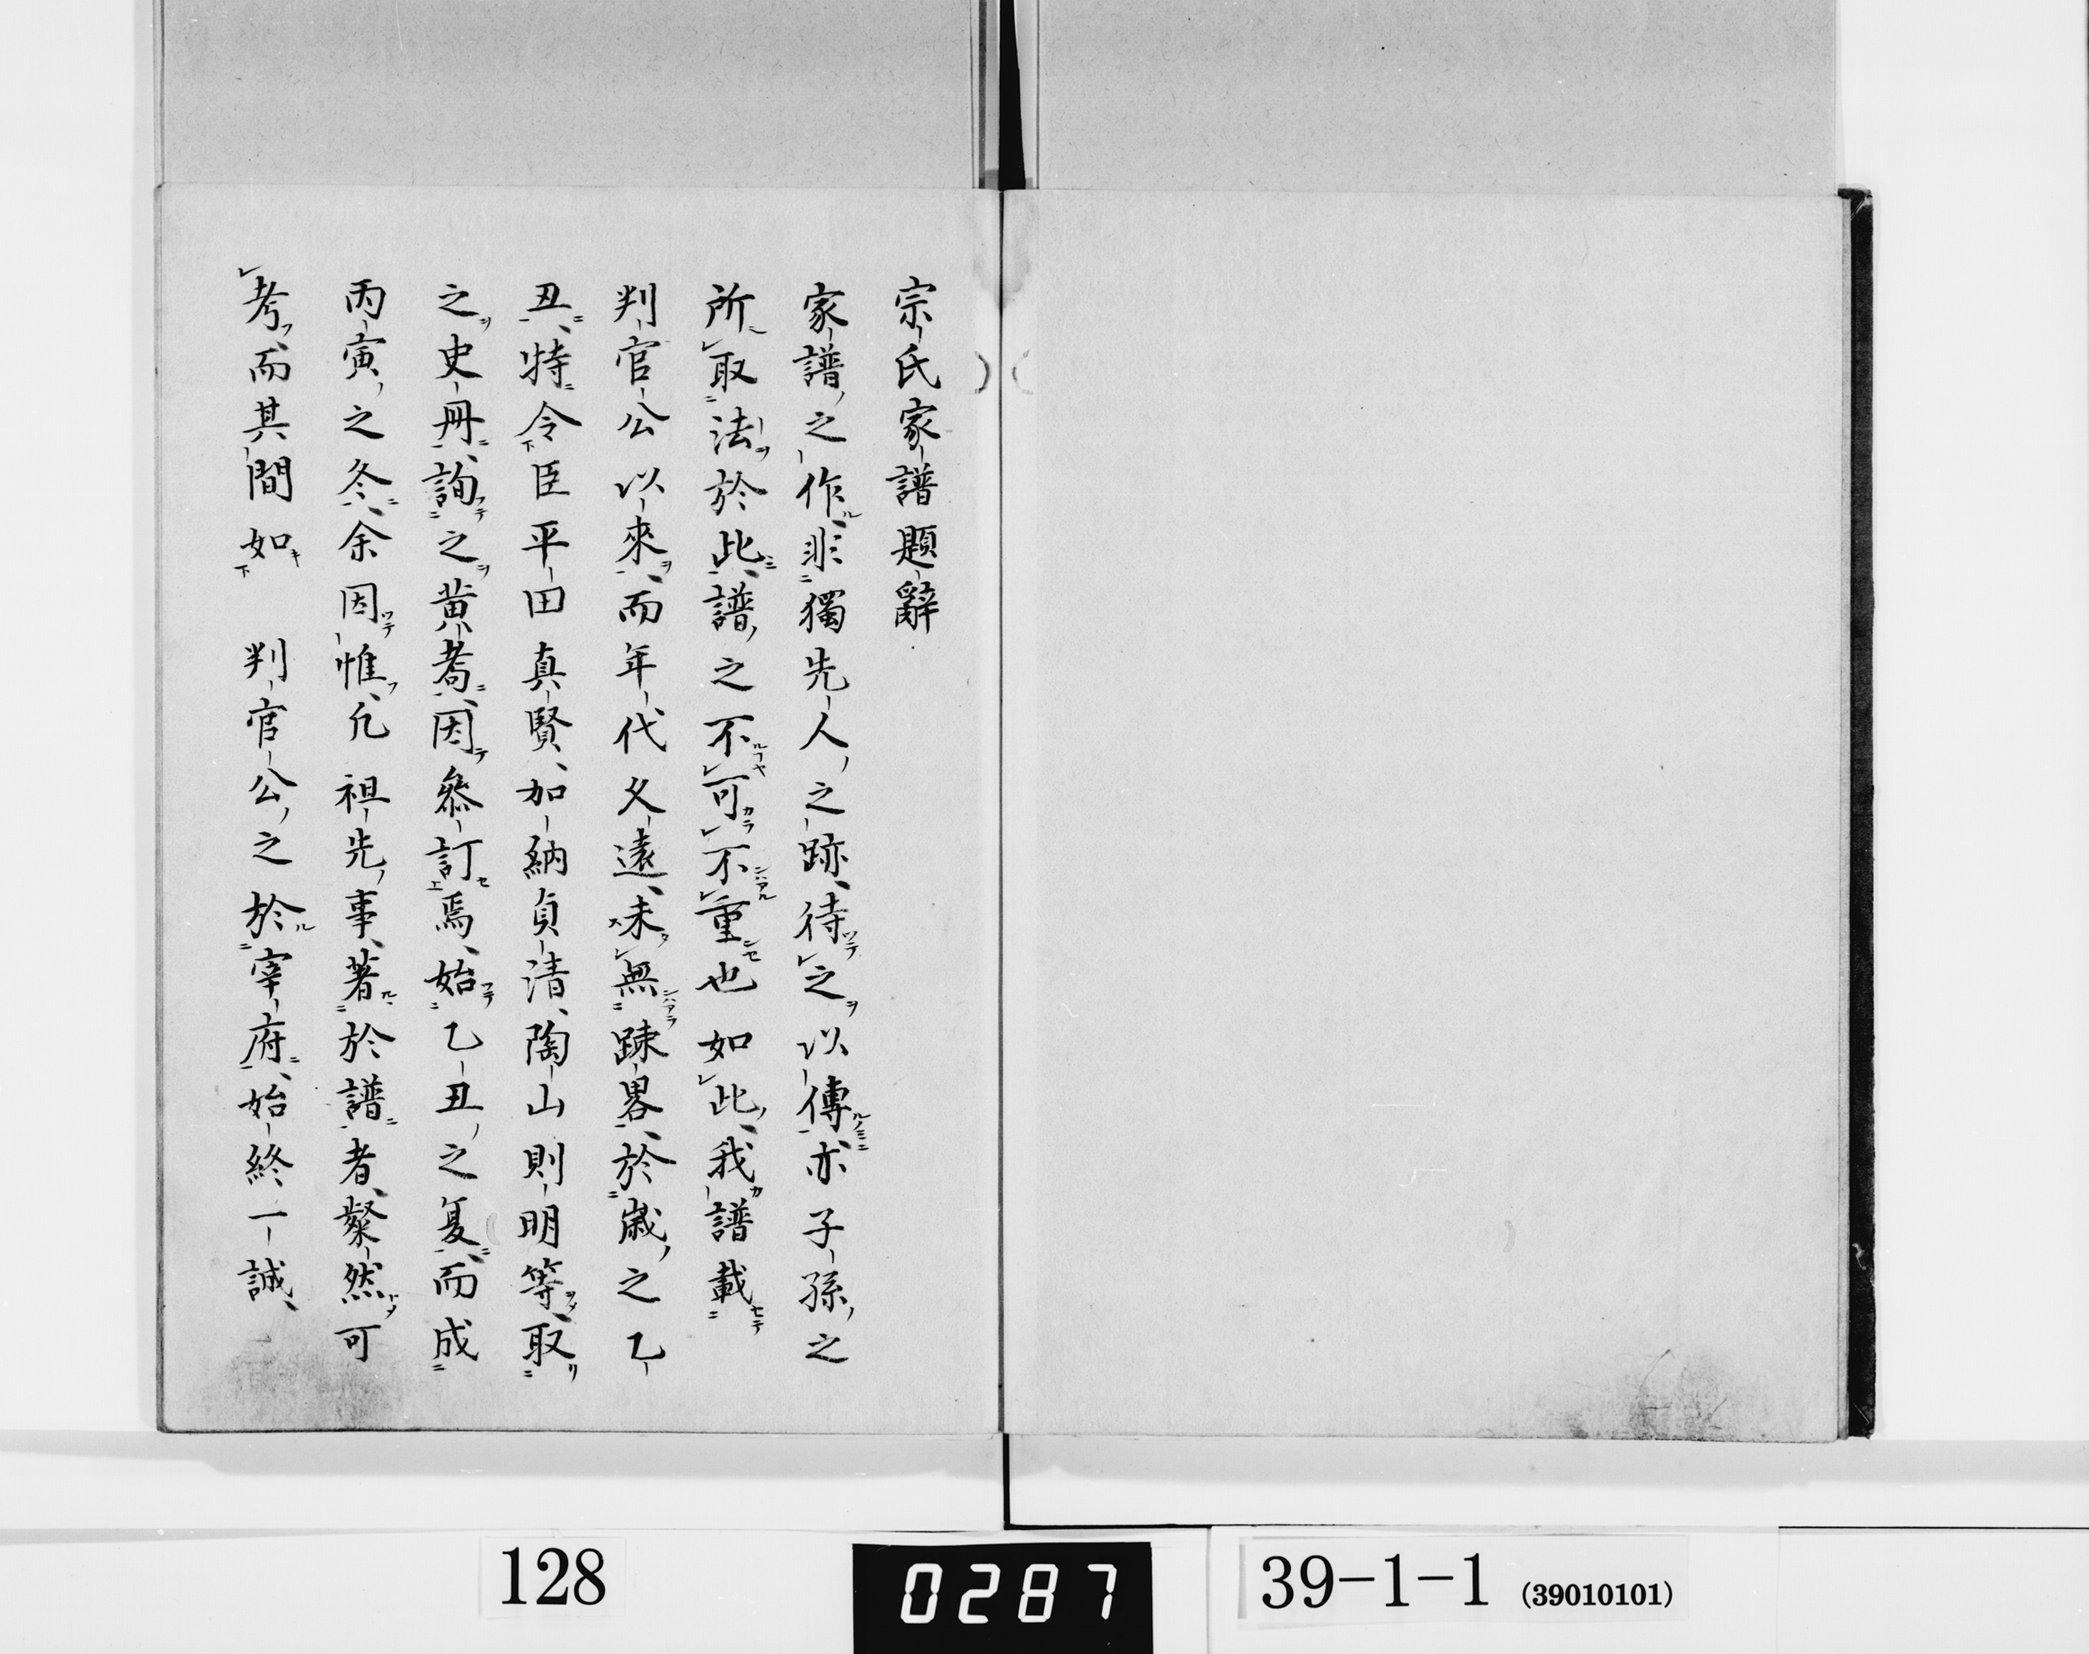 宗氏家譜題辭
家譜之作非獨先人之跡待之以傳亦子孫之
所取法於此譜之不可不重也如此我譜載
判官公以來而年代久遠未無踈畧於歲之乙
丑特令臣平田真賢加納貞清陶山則明等取
之史冊詢之黄耇因叅訂焉始乙丑之夏而成
丙寅之冬余因惟凡祖先事著於譜者粲然可
考而其間如　判官公之於宰府始終一誠
128
0287
39-1-1 (39010101)